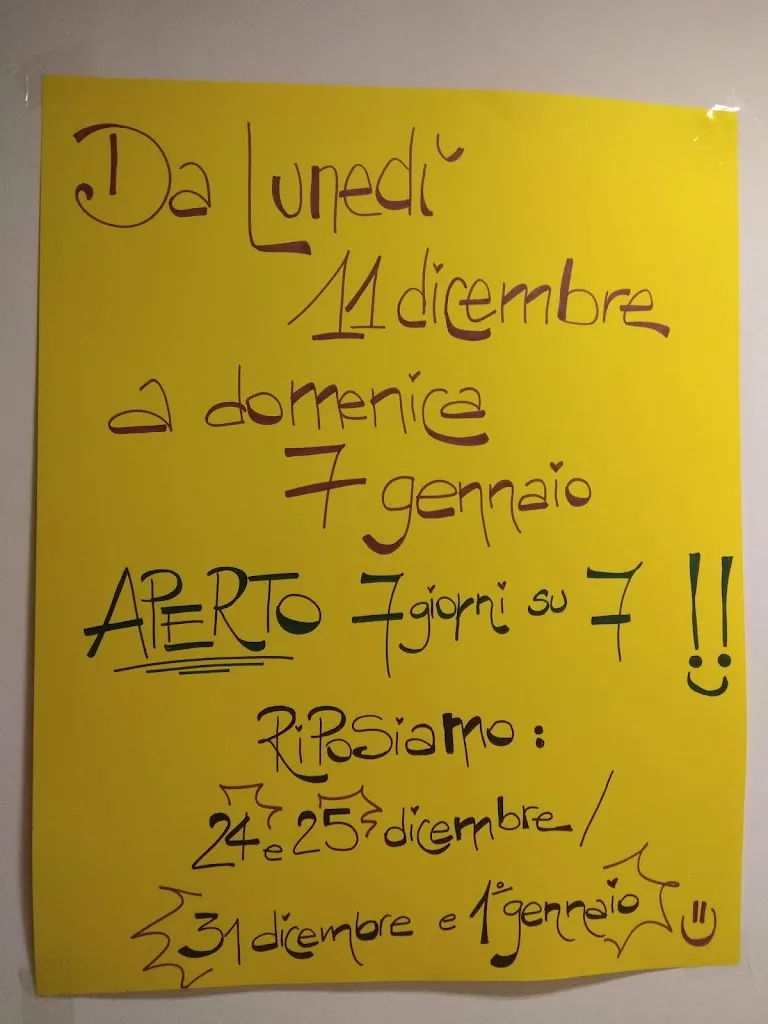 Da Lunedì
11 dicembre
a domenica
7 gennaio
APERTO 7 giorni su 7 !!
RiPoSiamo:
24 e 25 dicembre /
31 dicembre e 1° gennaio